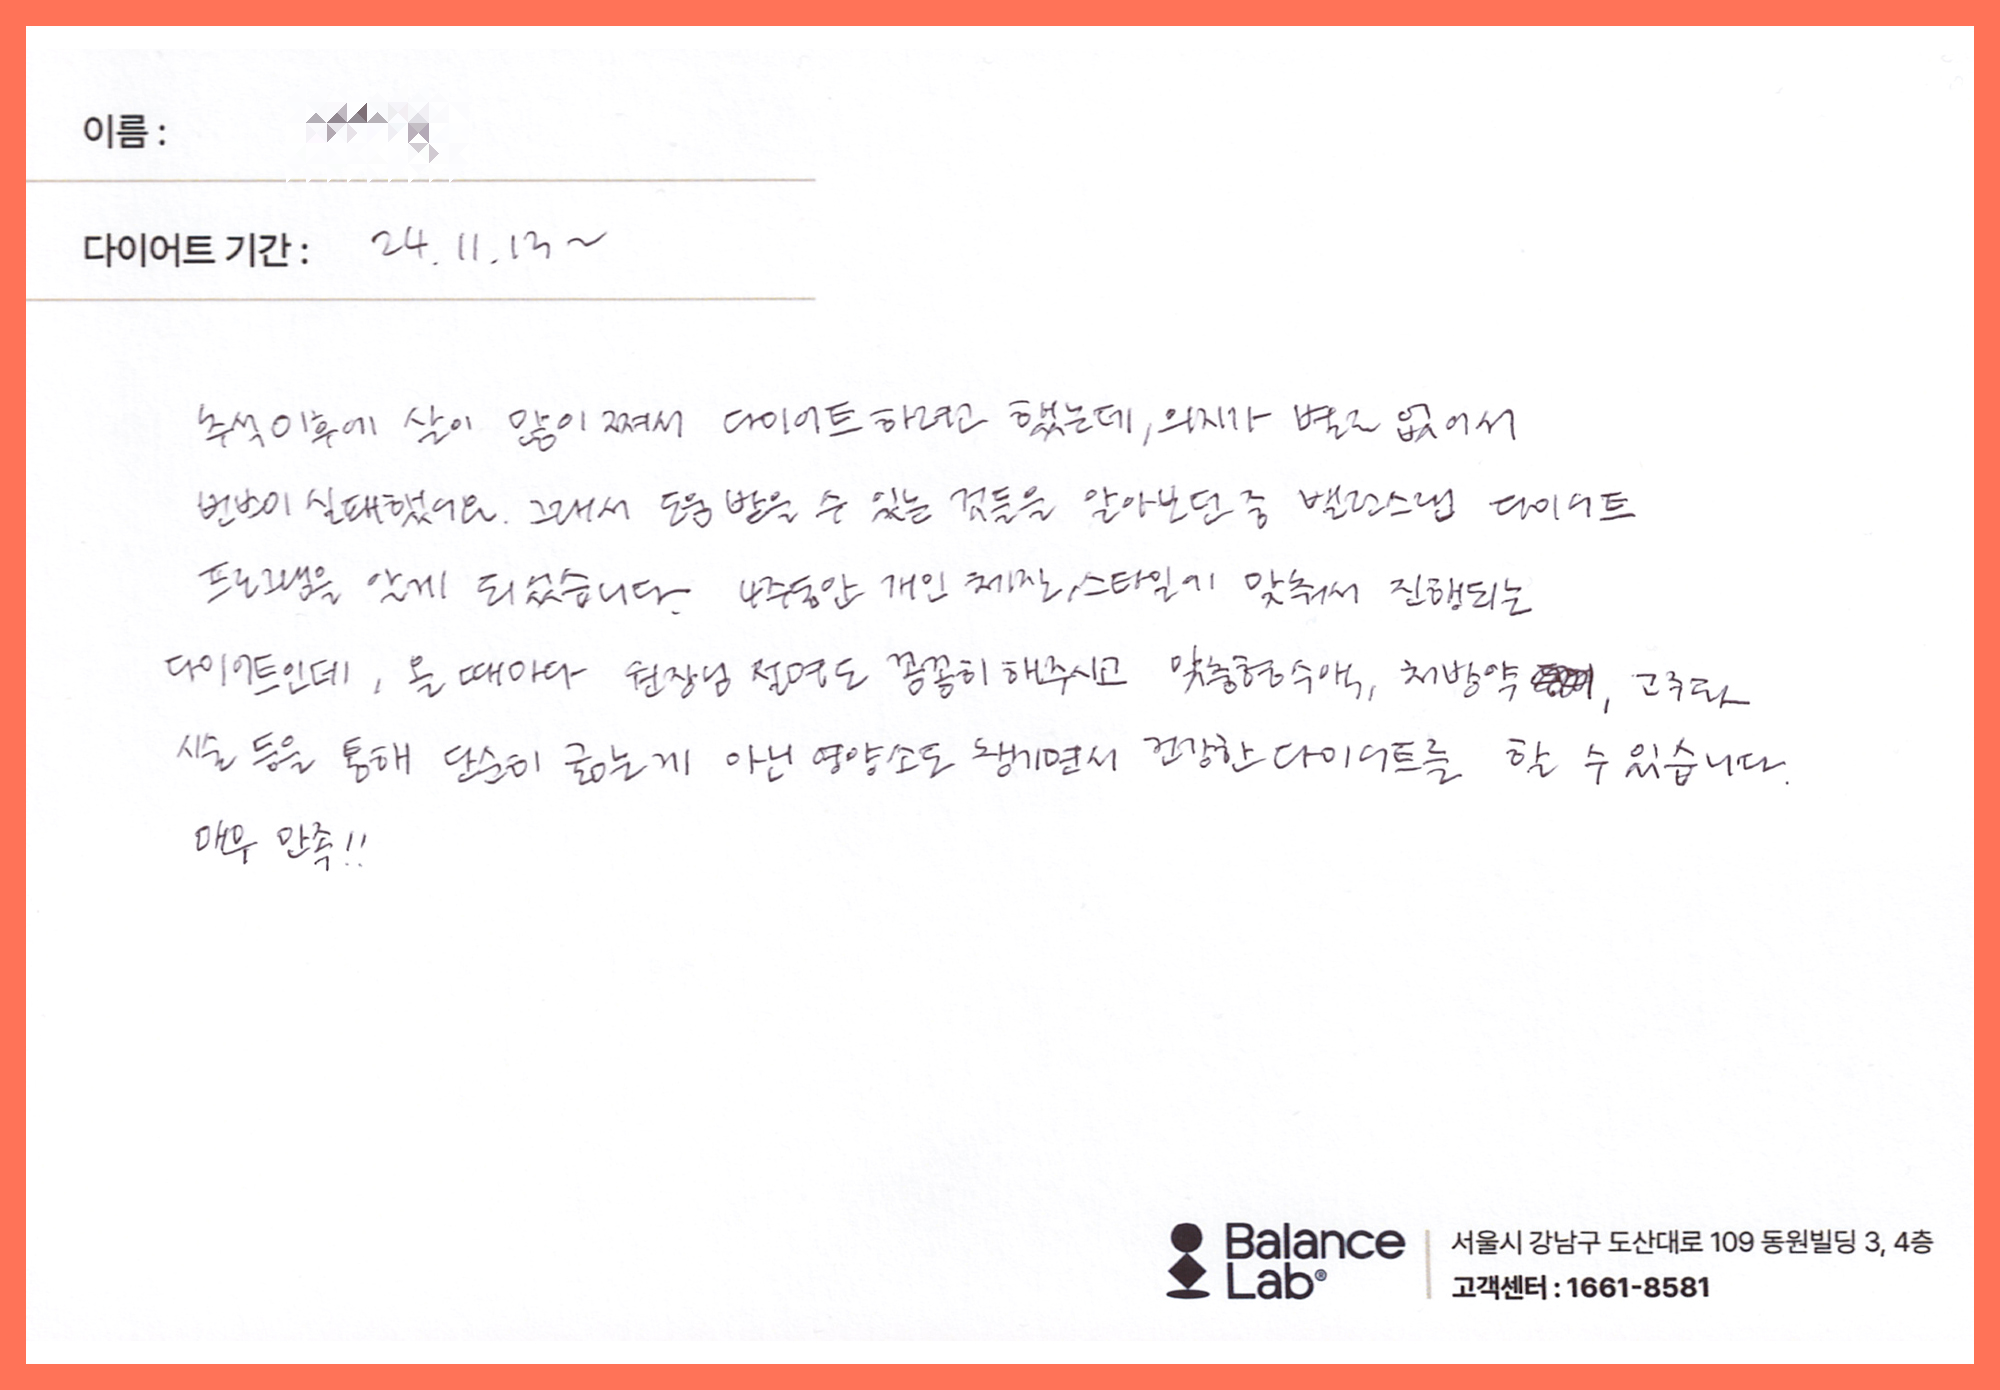 이름 :
다이어트 기간 : 24.11.13~
추석 이후에 살이 많이 쪄서 다이어트 하려고 했는데, 의지가 별로 없어서
번번이 실패했어요. 그래서 도움 받을 수 있는 것들을 알아보던 중 밸런스랩 다이어트
프로그램을 알게 되었습니다. 4주동안 개인 체질, 스타일에 맞춰서 진행되는
다이어트인데, 올 때마다 원장님 설명도 꼼꼼히 해주시고 맞춤형 수액, 처방약, 고주파
시술 등을 통해 단순히 굶는게 아닌 영양소도 챙기면서 건강한 다이어트를 할 수 있습니다.
매우 만족!!
Balance Lab®
서울시 강남구 도산대로 109 동원빌딩 3, 4층
고객센터 : 1661-8581